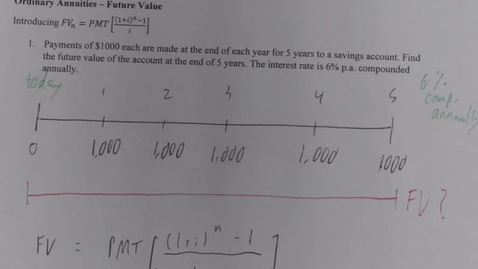 Ordinary Annuities – Future Value
Introducing FVₙ = PMT [((1+i)ⁿ−1)/i]
1. Payments of $1000 each are made at the end of each year for 5 years to a savings account. Find
the future value of the account at the end of 5 years. The interest rate is 6% p.a. compounded
annually.
today 1 2 3 4 5 6% comp. annually
0 1,000 1,000 1,000 1,000 1000
FV?
FV = PMT [ (1+i)ⁿ - 1 ]